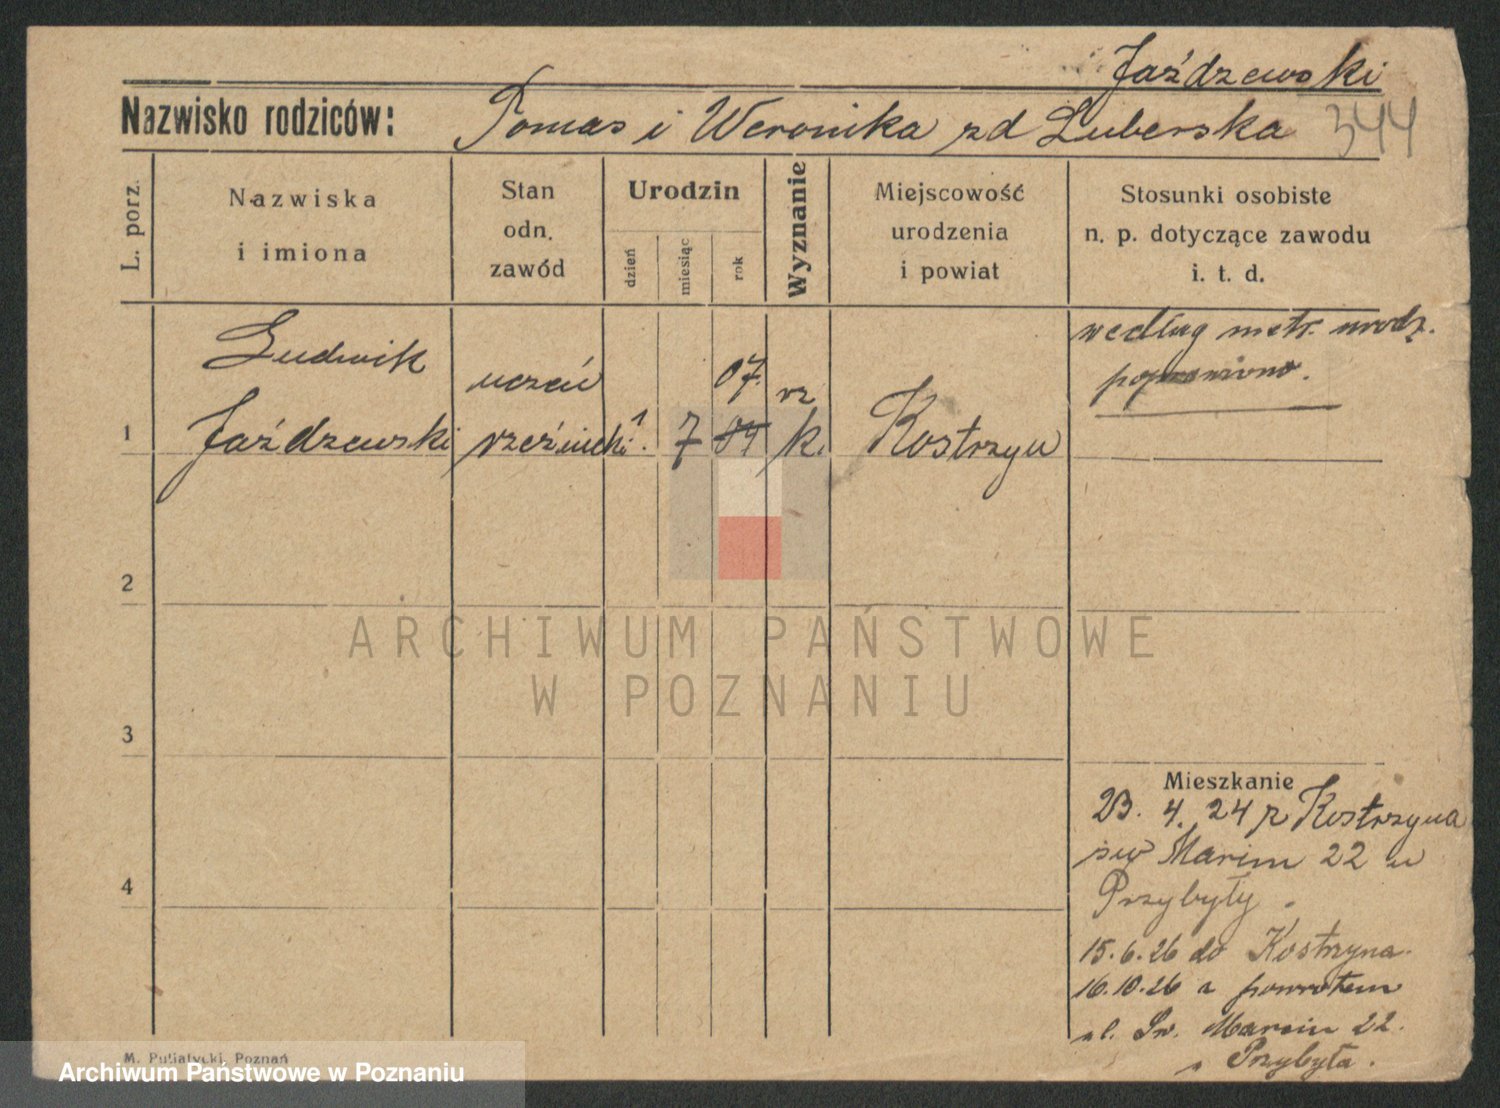 Jaździewski
Nazwisko rodziców: Tomas i Weronika zd Luberska 344
L. porz.
Nazwiska
i imiona
Stan
odn.
zawód
Urodzin
dzień
miesiąc
rok
Wyznanie
Miejscowość
urodzenia
i powiat
Stosunki osobiste
n. p. dotyczące zawodu
i. t. d.
1
Ludwik
Jaździewski
uczeń
rzeźnicki
1. 7 07.
04
rz
k.
Kostrzyn
według metr. urodz.
poprawiono.
2
3
4
Mieszkanie
23. 4. 24 z Kostrzyna
św Marcin 22 u
Przybyły.
15.6.26 do Kostrzyna.
16.10.26 z powrotem
ul. Św. Marcin 22.
Przybyła.
M. Putiatycki, Poznań
ARCHIWUM PAŃSTWOWE
W POZNANIU
Archiwum Państwowe w Poznaniu